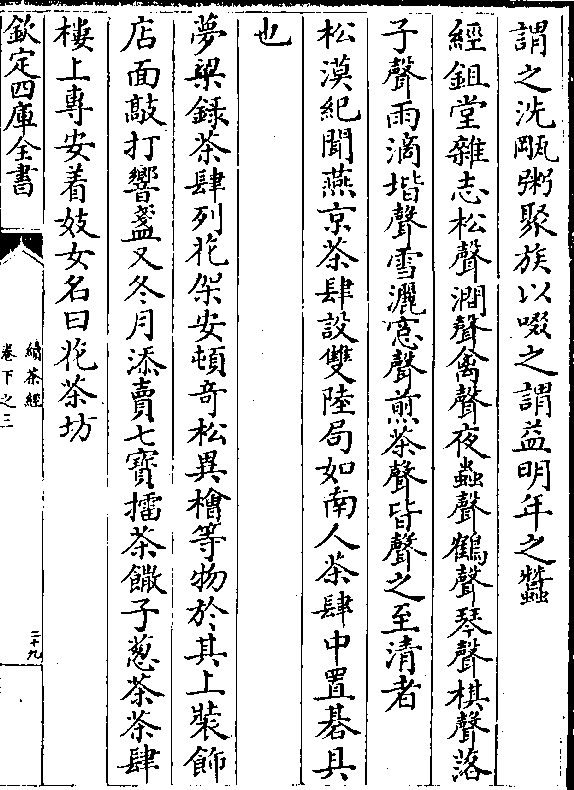 謂之洗甌粥聚族以啜之謂益明年之蠶
經鉏堂雜志松聲澗聲禽聲夜蟲聲鶴聲琴聲棋聲落
子聲雨滴堦聲雪灑窓聲煎茶聲皆聲之至清者
松漠紀聞燕京茶肆設雙陸局如南人茶肆中置碁具
也
夢梁錄茶肆列花架安頓奇松異檜等物於其上裝飾
店面敲打響盞又冬月添賣七寶擂茶饊子葱茶茶肆
樓上專安着妓女名曰花茶坊
欽定四庫全書
續茶經
卷下之三
二十九